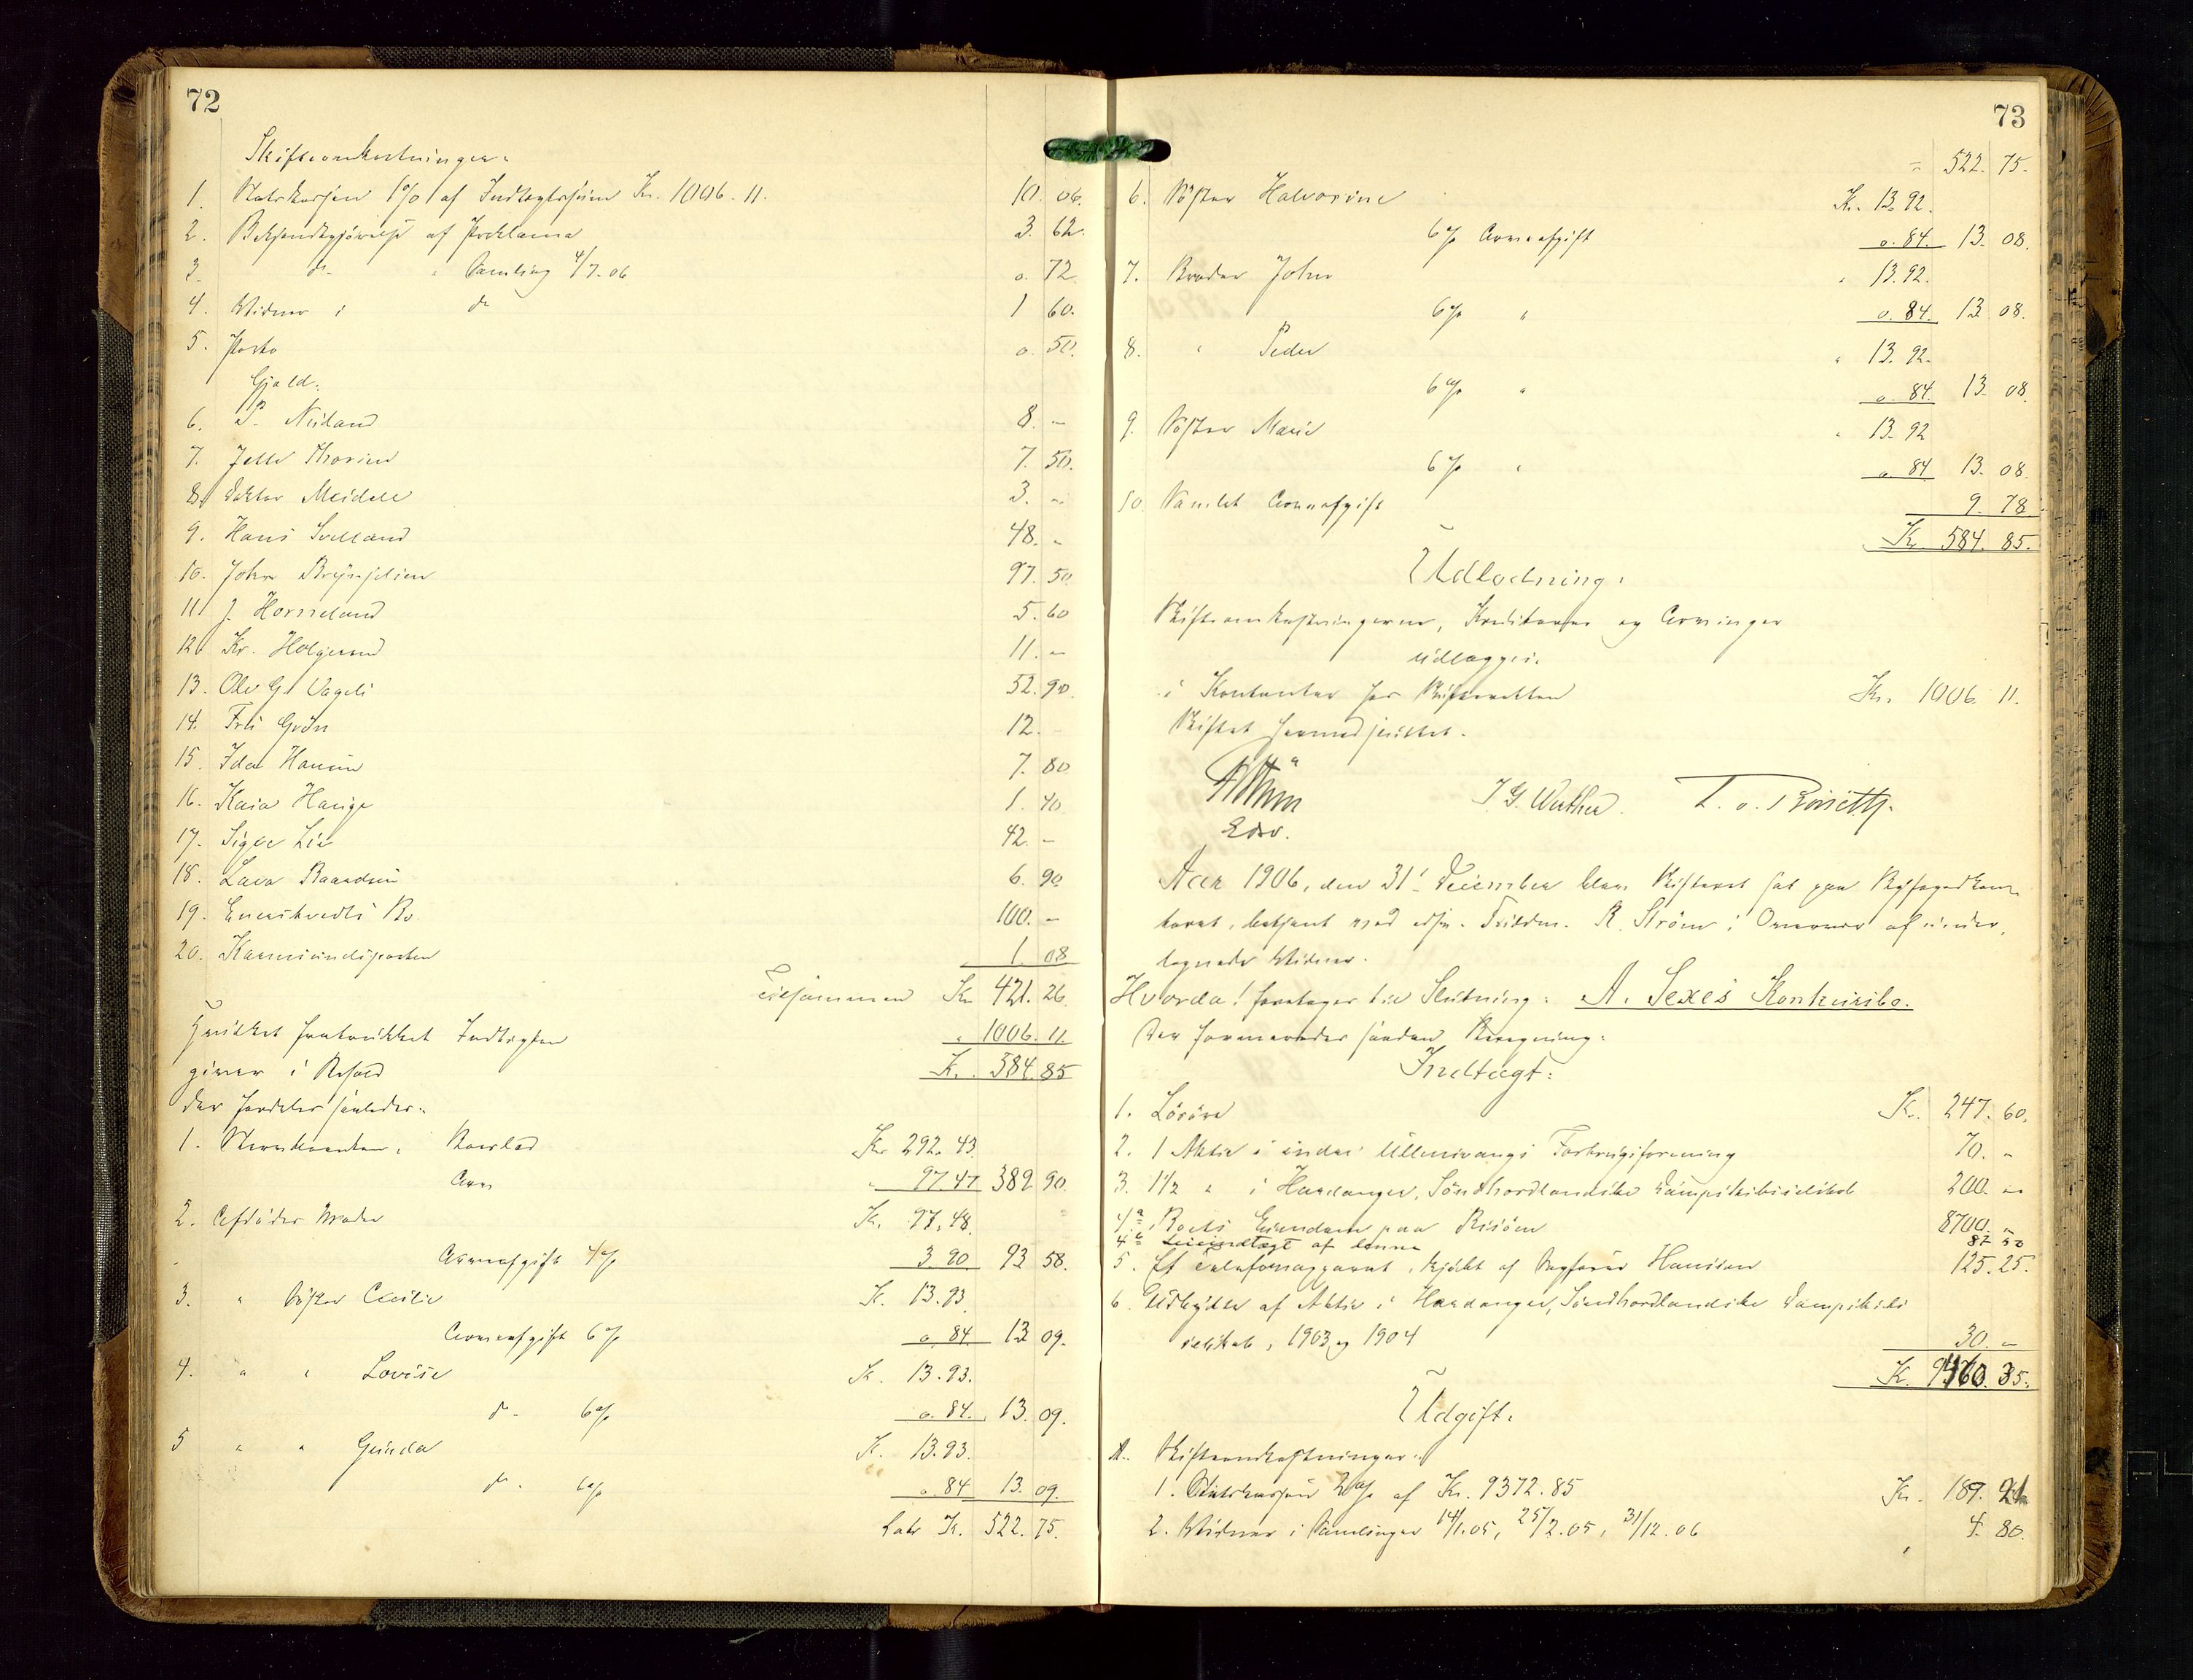 72
Skifteomkostninger.
1. Statskassen 1% af Indtægtssum Kr. 1006. 11. 10. 06.
2. Bekjendtgjørelse af Proklama 3. 62.
3. do. " Samling 4/7. 06 0. 72
4. Vidner i do 1 60.
5. Porto 0. 50.
Gjæld.
6. P. Niland 8. -
7. Jelle Thorsen 7. 50.
8. Doktor Meidell 3. -
9. Hans Sælland 48. -
10. John Brynjelsen 97. 50.
11. J. Horneland 5. 60
12. Kr. Holgersen 11. -
13. Ole G. Vageli 52. 90.
14. Frk Grøn 12. -
15. Ida Hansen 7. 80
16. Kaia Hauge 1. 40.
17. Sigv Lie 42. -
18. Lava Baardsen 6. 90
19. Enershvedts Bo. 100. -
20. Karmsundsposten 1. 08
Tilsammen Kr 421. 26.
Hvilket fratrukket Indtægten " 1006. 11.
giver i Behold K. 584. 85
der fordeles saaledes:
1. Sterbeenken, Boeslod Kr 292. 43.
Arv " 97. 47 389 90.
2. Afdødes Moder K. 97. 48.
Arveafgift 4% 3. 90. 93 58.
3. " Søster Cecilie K. 13. 93.
Arveafgift 6% 0. 84 13 09.
4. " " Lovise K. 13. 93.
do. 6% 0. 84. 13. 09.
5 " " Gunda K. 13. 93.
do. 6% 0. 84 13. 09.
Lats K. 522. 75.
73
= 522. 75.
6. Søster Halvorine K. 13. 92.
6% Arveafgift 0. 84. 13. 08.
7. Broder John " 13. 92.
6% " 0. 84. 13 08.
8. " Peder " 13. 92.
6% " 0. 84. 13. 08.
9. Søster Marie " 13. 92
6% " 0. 84 13. 08.
10. Samlet Arveafgift 9. 78.
Kr. 584. 85.
Udlodning.
Skifteomkostningerne, Kreditorer og Arvinger
udlægges.
i Kontanter hos Skifteretten Kr. 1006. 11.
Skiftet hermed sluttet.
Edsv.
Aar 1906, den 31' December blev Skifteret sat paa Byfogedkon-
toret, betjent ved edsv. Fuldm. R. Strøm i Overvær af under-
tegnede Vidner.
Hvorda! foretoges til Slutning: A. Sexes Konkursbo.
Der formeredes saadan Beregning:
Indtægt:
1. Løsøre K. 247. 60.
2. 1 Aktie i indre Ullensvangs Forbrugsforening 70. -
3. 1 1/2 " i Hardanger, Søndhordlandske Dampskibsselskab 200. -
4a Boets Eiendom paa Risøen 8700. -
4b Leieindtægt af denne 87 50
5. Et Telefonapparat, kjøbt af Sagfører Hanssen 125. 25.
6. Udbytte af Aktie i Hardanger, Søndhordlandske Dampskibs
selskab, 1903 og 1904 30. -
K. 9460. 35.
Udgift.
A. Skifteomkostninger.
1. Statskassen 2% af Kr. 9372. 85 Kr. 189. 21
2. Vidner i Samlinger 14/1. 05, 25/2. 05, 31/12. 06 4. 80.